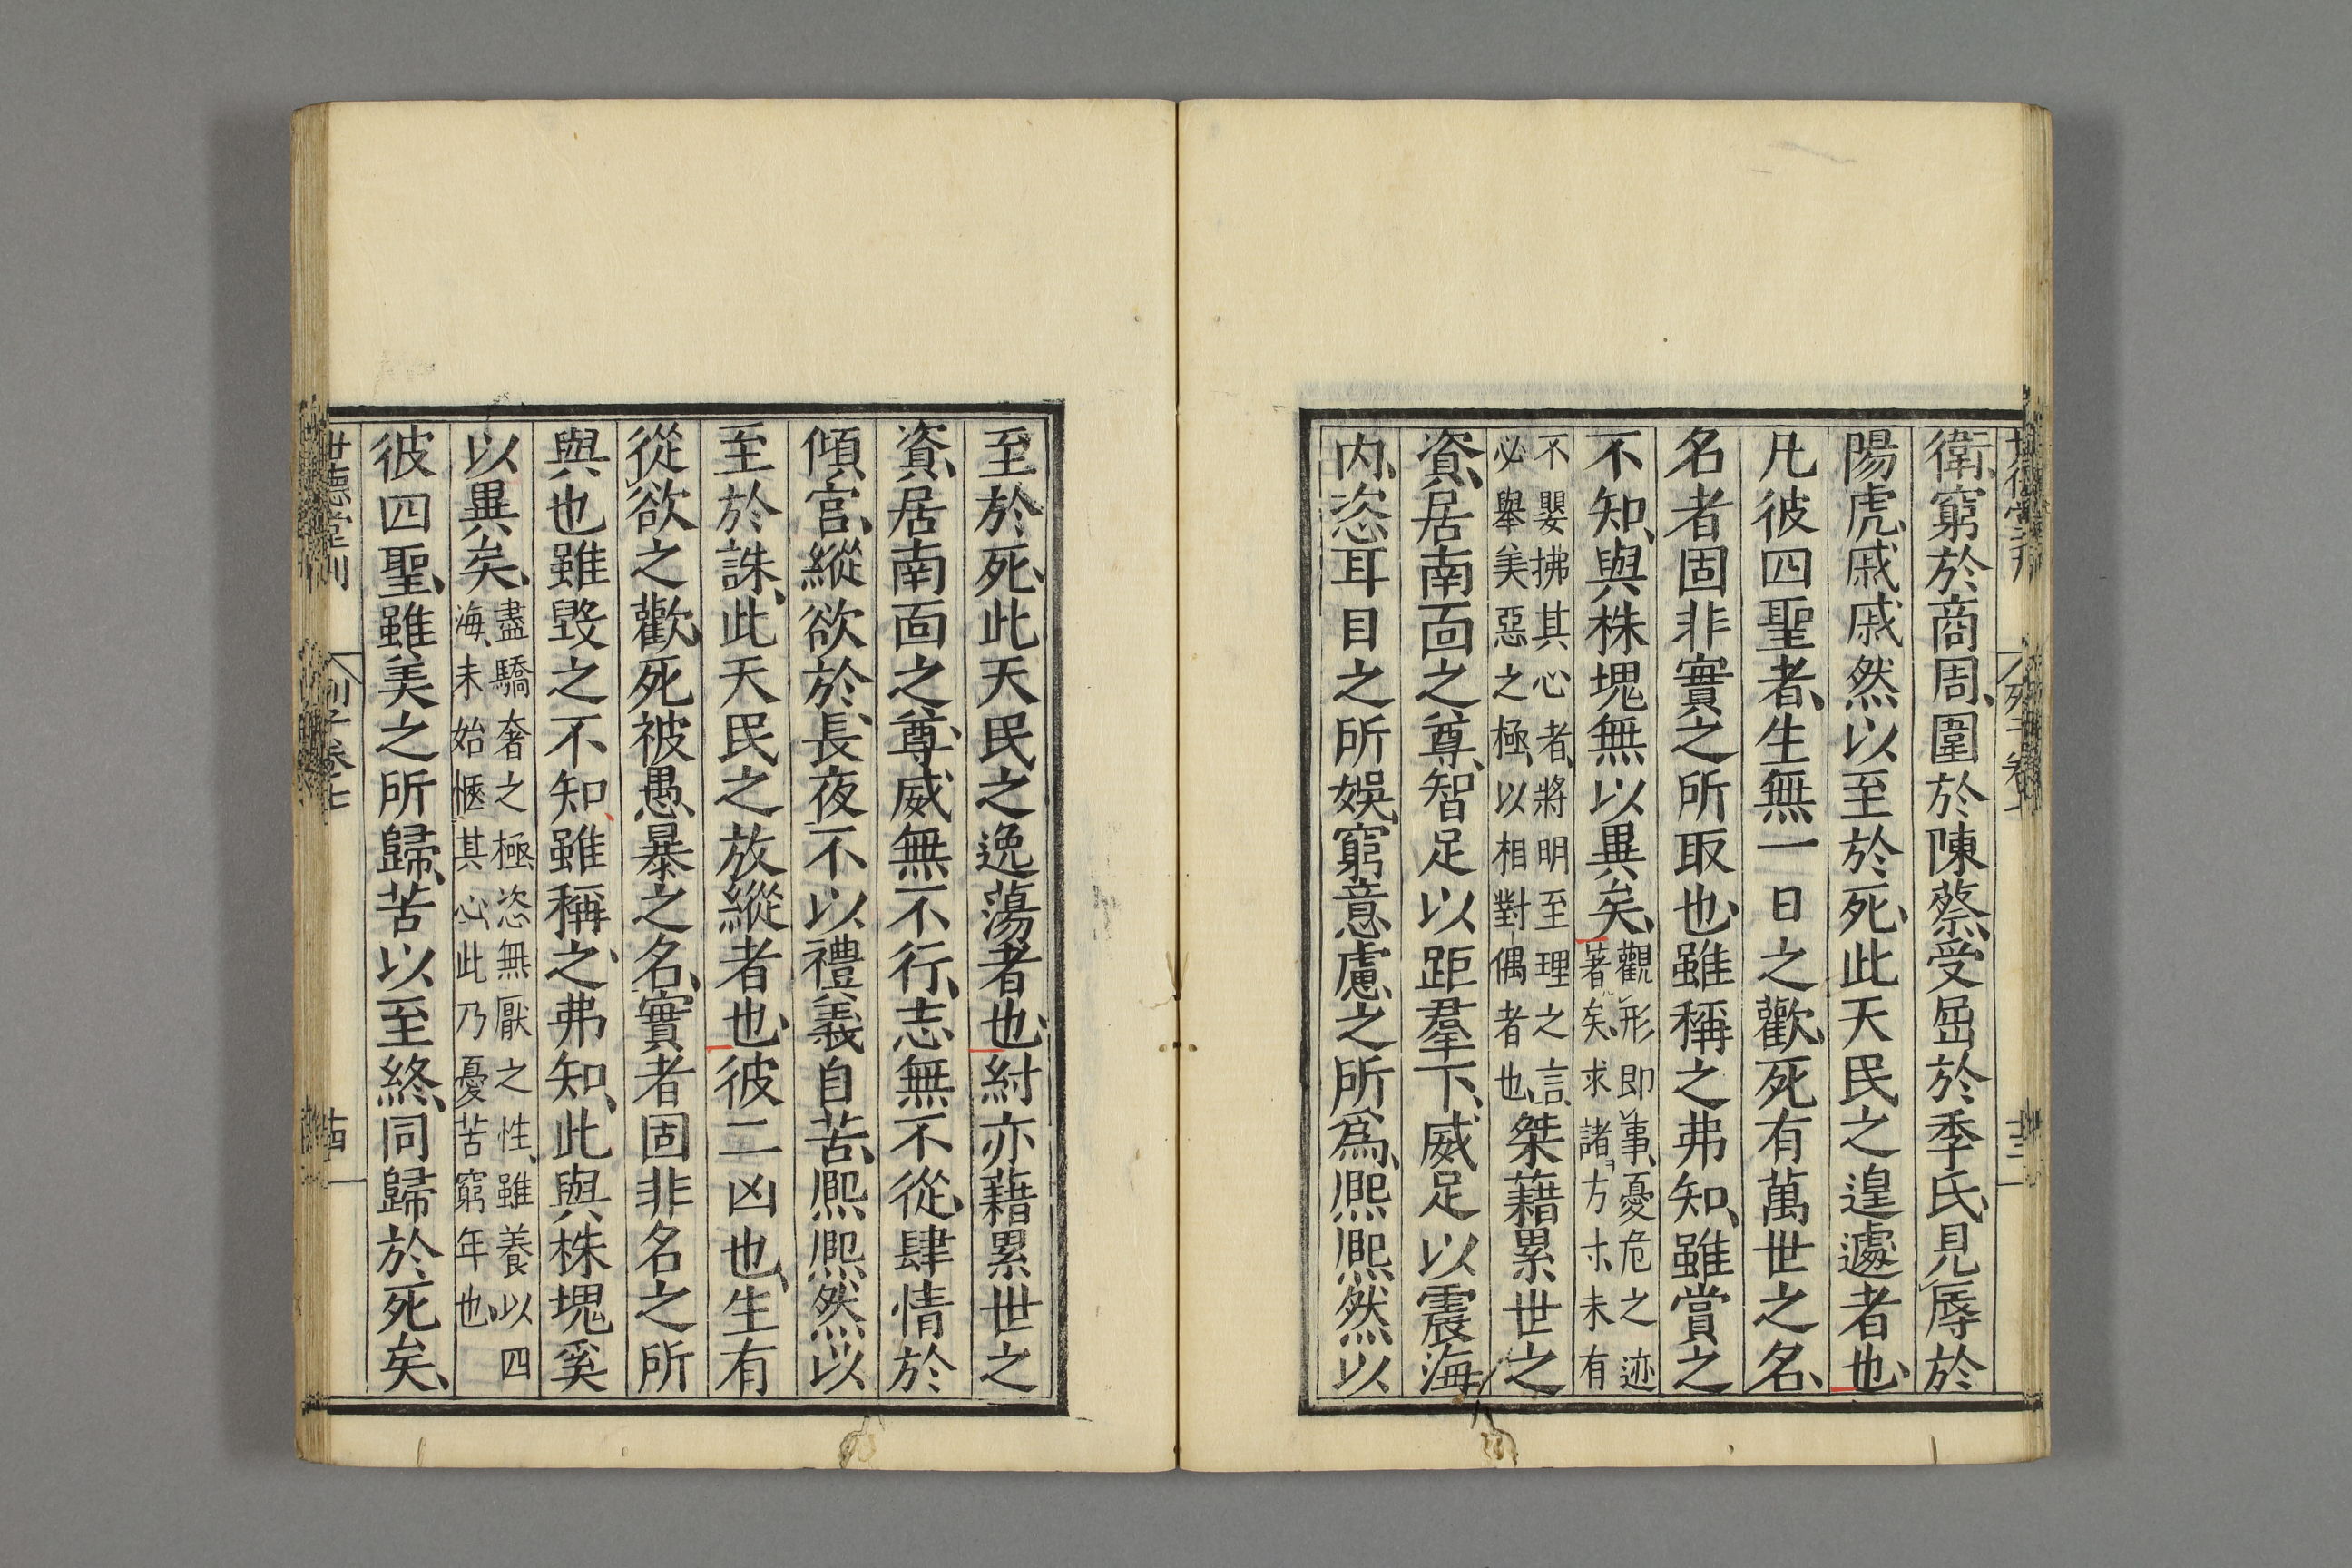 衛、窮於商周、圍於陳蔡、受屈於季氏、見辱於
陽虎、戚戚然以至於死、此天民之遑遽者也、
凡彼四聖者、生無一日之歡、死有萬世之名、
名者固非實之所取也、雖稱之弗知、雖賞之
不知、與株塊無以異矣、觀形即事、憂危之迹
著矣、求諸方寸未有
不嬰拂其心者、將明至理之言、
必舉美惡之極、以相對偶者也、桀藉累世之
資、居南面之尊、智足以距羣下、威足以震海
内、恣耳目之所娛、窮意慮之所爲、熙熙然以
至於死、此天民之逸蕩者也、紂亦藉累世之
資、居南面之尊、威無不行、志無不從、肆情於
傾宫、縱欲於長夜、不以禮義自苦、熙熙然以
至於誅、此天民之放縱者也、彼二凶也、生有
從欲之歡、死被愚暴之名、實者固非名之所
與也雖毀之不知、雖稱之、弗知、此與株塊奚
以異矣、盡驕奢之極、恣無厭之性、雖養以四
海、未始愜其心、此乃憂苦窮年也、
彼四聖、雖美之所歸、苦以至終、同歸於死矣、
世德堂刊 列子卷七 十四